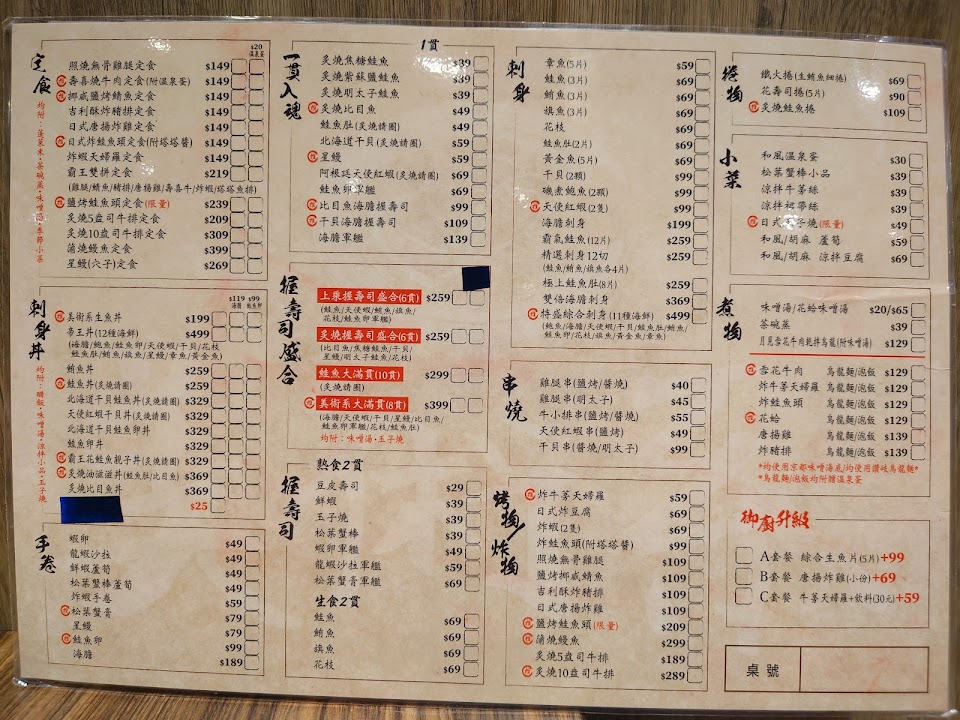 定食
均附：蓬萊米、茶碗蒸、味噌湯、季節小菜
$20
溫泉蛋
照燒無骨雞腿定食 $149
壽喜燒牛肉定食(附溫泉蛋) $149
挪威鹽烤鯖魚定食 $149
吉利酥炸豬排定食 $149
日式唐揚炸雞定食 $149
日式炸鮭魚頭定食(附塔塔醬) $149
炸蝦天婦羅定食 $149
霸王雙拼定食 $219
(雞腿/鯖魚/豬排/唐揚雞/壽喜牛/炸蝦/塔塔魚排)
鹽烤鮭魚頭定食(限量) $239
炙燒5盎司牛排定食 $209
炙燒10盎司牛排定食 $309
蒲燒鰻魚定食 $399
星鰻(穴子)定食 $269
刺身丼
均附：醋飯、味噌湯、涼拌小品、玉子燒
$119 $99
海膽 鮭魚卵
美術系生魚丼 $199
帝王丼(12種海鮮) $499
(海膽/鮑魚/鮭魚卵/天使蝦/干貝/花枝
鮭魚肚/鮪魚/旗魚/星鰻/章魚/黃金魚)
鮪魚丼 $259
鮭魚丼(炙燒請圈) $259
北海道干貝鮭魚丼(炙燒請圈) $329
天使紅蝦干貝丼(炙燒請圈) $329
北海道干貝鮭魚卵丼 $329
鮭魚卵丼 $329
霸王花鮭魚親子丼(炙燒請圈) $329
炙燒油滋滋丼(鮭魚肚/比目魚) $369
炙燒比目魚丼 $369
$25
手卷
蝦卵 $49
龍蝦沙拉 $49
鮮蝦蘆筍 $49
松葉蟹棒蘆筍 $49
炸蝦手卷 $59
松葉蟹膏 $79
星鰻 $79
鮭魚卵 $99
海膽 $189
一貫入魂
1貫
炙燒焦糖鮭魚 $39
炙燒紫蘇鹽鮭魚 $39
炙燒明太子鮭魚 $39
炙燒比目魚 $49
鮭魚肚(炙燒請圈) $49
北海道干貝(炙燒請圈) $59
星鰻 $59
阿根廷天使紅蝦(炙燒請圈) $69
鮭魚卵軍艦 $69
比目魚海膽握壽司 $99
干貝海膽握壽司 $109
海膽軍艦 $139
握壽司盛合
上乘握壽司盛合(6貫) $259
(鮭魚/天使蝦/鮪魚/旗魚/
花枝/鮭魚卵軍艦)
炙燒握壽司盛合(6貫) $259
(比目魚/焦糖鮭魚/干貝/
星鰻/明太子鮭魚/花枝)
鮭魚大滿貫(10貫) $299
(炙燒請圈)
美術系大滿貫(8貫) $399
(海膽/天使蝦/干貝/星鰻/比目魚/
鮭魚卵軍艦/花枝/鮭魚肚)
均附：味噌湯、玉子燒
握壽司
熟食2貫
豆皮壽司 $29
鮮蝦 $39
玉子燒 $39
松葉蟹棒 $39
蝦卵軍艦 $49
龍蝦沙拉軍艦 $59
松葉蟹膏軍艦 $69
生食2貫
鮭魚 $69
鮪魚 $69
旗魚 $69
花枝 $69
刺身
章魚(5片) $59
鮭魚(3片) $69
鮪魚(3片) $69
旗魚(3片) $69
花枝 $69
鮭魚肚(2片) $69
黃金魚(5片) $69
干貝(2顆) $99
磯煮鮑魚(2顆) $99
天使紅蝦(2隻) $99
海膽刺身 $199
霸氣鮭魚(12片) $259
精選刺身12切 $259
(鮭魚/鮪魚/旗魚各4片)
極上鮭魚肚(8片) $259
雙倍海膽刺身 $369
特盛綜合刺身(11種海鮮) $499
(鮑魚/海膽/天使蝦/干貝/鮭魚肚/鮭魚/
鮭魚卵/花枝/旗魚/鮪魚/章魚)
串燒
雞腿串(鹽烤/醬燒) $40
雞腿串(明太子) $45
牛小排串(鹽烤/醬燒) $55
天使紅蝦串(鹽烤) $49
干貝串(醬燒/明太子) $99
烤物/炸物
炸牛蒡天婦羅 $59
日式炸豆腐 $69
炸蝦(2隻) $69
炸鮭魚頭(附塔塔醬) $69
照燒無骨雞腿 $109
鹽烤挪威鯖魚 $109
吉利酥炸豬排 $109
日式唐揚炸雞 $109
鹽烤鮭魚頭(限量) $209
蒲燒鰻魚 $299
炙燒5盎司牛排 $189
炙燒10盎司牛排 $289
捲物
鐵火捲(生鮪魚細捲) $69
花壽司捲(5片) $90
炙燒鮭魚捲 $109
小菜
和風溫泉蛋 $30
松葉蟹棒小品 $39
涼拌牛蒡絲 $39
涼拌裙帶絲 $39
日式玉子燒(限量) $49
和風/胡麻 蘆筍 $59
和風/胡麻 涼拌豆腐 $69
煮物
味噌湯/花蛤味噌湯 $20/$65
茶碗蒸 $39
月見雪花牛肉乾拌烏龍(附味噌湯) $129
雪花牛肉 烏龍麵/泡飯 $129
炸牛蒡天婦羅 烏龍麵/泡飯 $129
炸鮭魚頭 烏龍麵/泡飯 $129
花蛤 烏龍麵/泡飯 $129
唐揚雞 烏龍麵/泡飯 $139
炸豬排 烏龍麵/泡飯 $139
*均使用京都味噌湯底/均使用讚岐烏龍麵*
*烏龍麵/泡飯均附贈溫泉蛋
御廚升級
A套餐 綜合生魚片(5片)+99
B套餐 唐揚炸雞(小份)+69
C套餐 牛蒡天婦羅+飲料(30元)+59
桌號